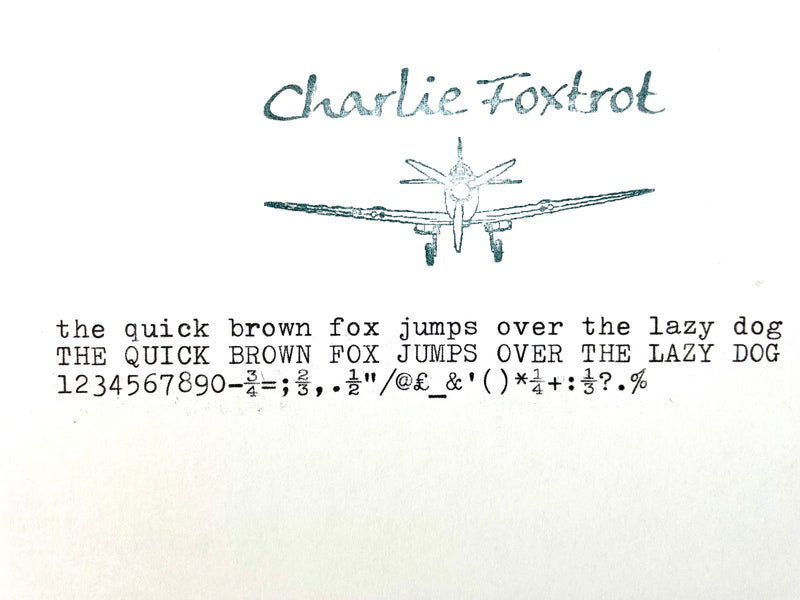 Charlie Foxtrot
the quick brown fox jumps over the lazy dog
THE QUICK BROWN FOX JUMPS OVER THE LAZY DOG
1234567890-¾=;⅔,.½"/@£_&'()*¼+:⅓?.%